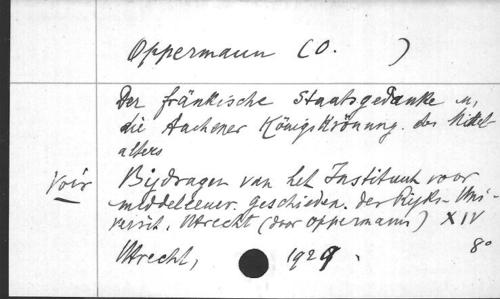 Oppermann (O. )
Der fränkische Staatsgedanke u,
die Aachener Königskrönung. des Mittel
alters
Voir Bijdragen van het Instituut voor
middeleeuw. geschieden. der Rijks-Uni-
versit. Utrecht (door Oppermann) XIV
Utrecht, 1929. 8°